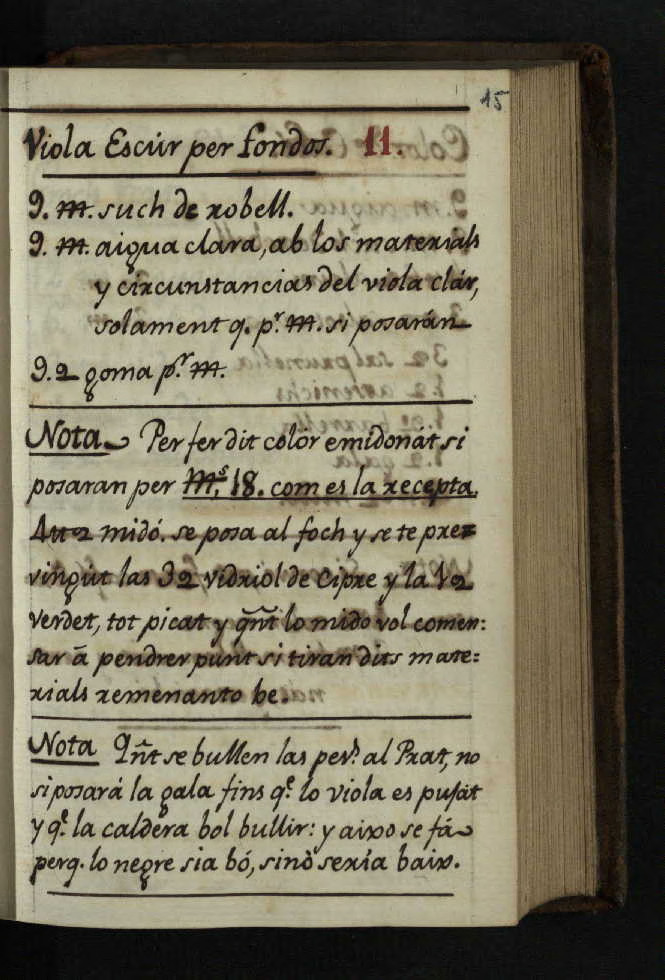 15
Viola Escúr per fondos. 11.
9. m. such de robell.
9. m. aigua clara, ab los materials
y circunstancias del viola clár,
solament q. pr. m. si posarán
9. 2 goma pr. m.
Nota Per fer dit colór emidonat si
posaran per Ms. 18. com es la recepta.
4 ll 2 midó. se posa al foch y se te pre=
vingút las 3 2 vidriol de Cipre y la 1 2
verdet, tot picat y qn̄t lo mido vol comen:
sar á pendrer punt si tiran dits mate=
rials remenanto be.
Nota Qn̄t se bullen las pess. al Prat, no
si posará la gala fins qe. lo viola es pujat
y qe. la caldéra bol bullir: y aixo se fá
perq. lo negre sia bó, sinó seria baix.